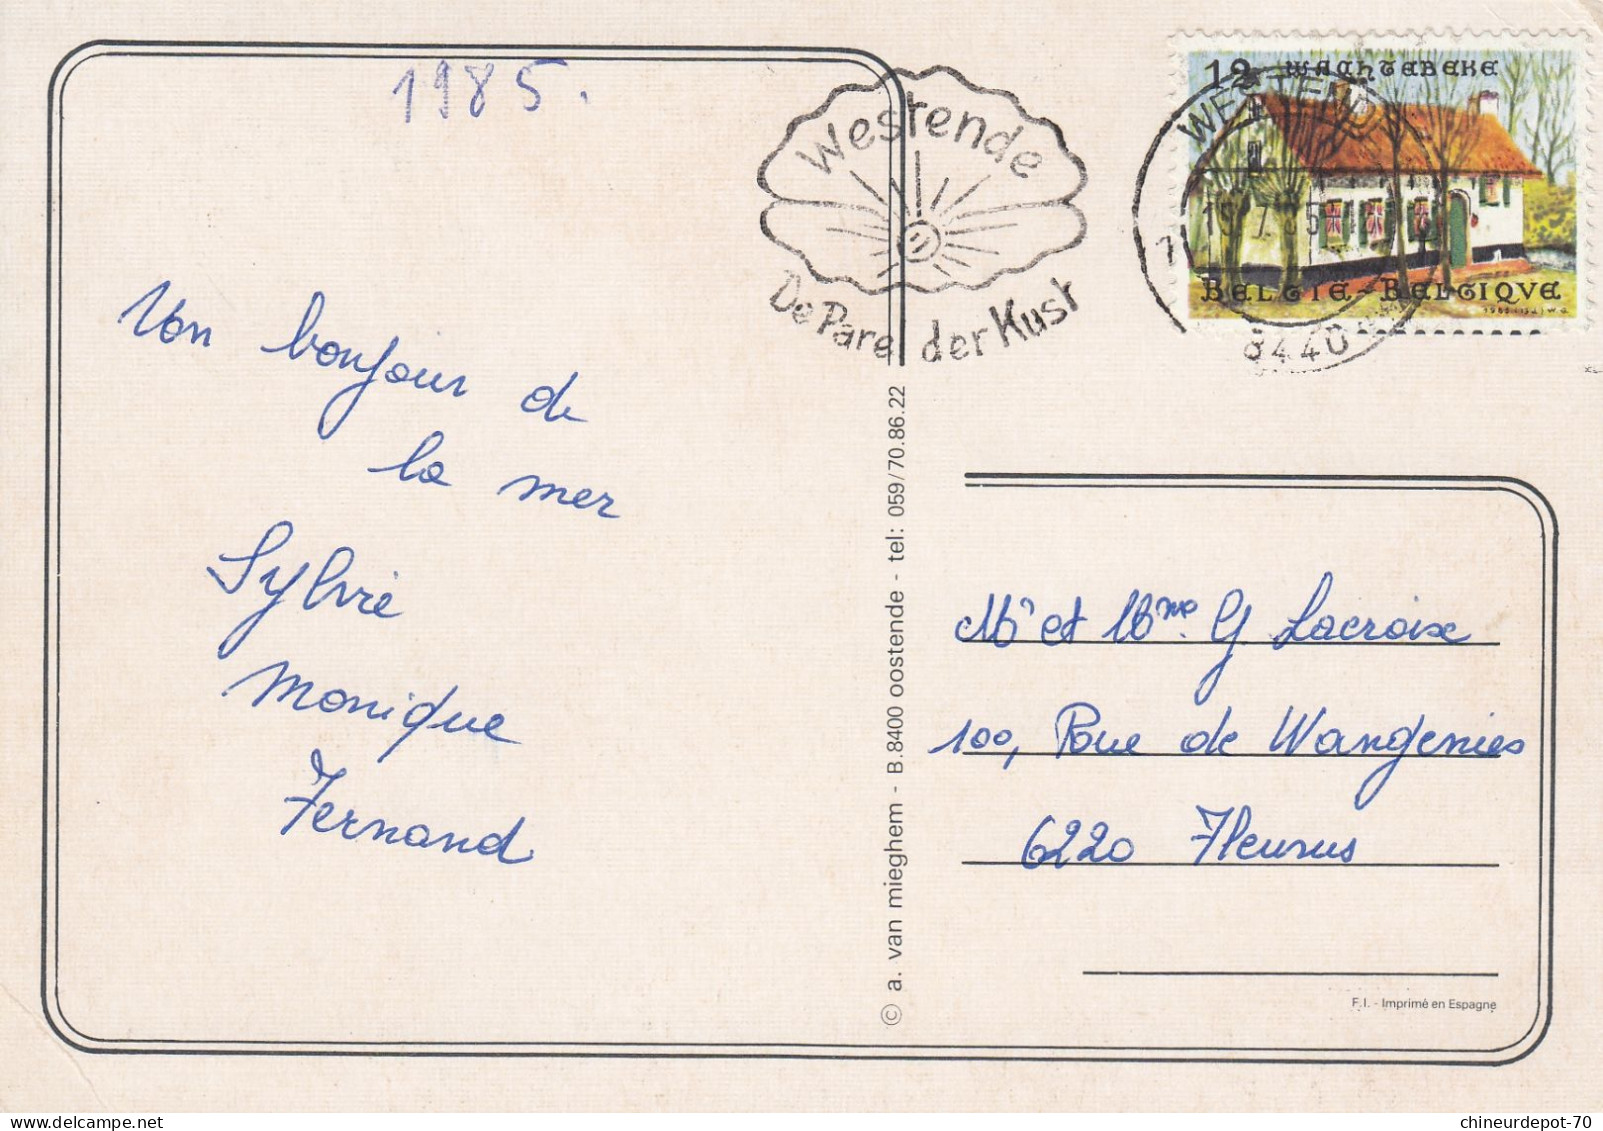 1985.
Un bonjour de
la mer
Sylvie
Monique
Fernand
Westende
De Parel der Kust
12 WACHTEBEKE
WESTENDE
BELGIE-BELGIQVE
8440
© a. van mieghem - B.8400 oostende - tel: 059/70.86.22
Mr et Mme. G Lacroix
100, Rue de Wangenies
6220 Fleurus
F.I. - Imprimé en Espagne
chineurdepot-70